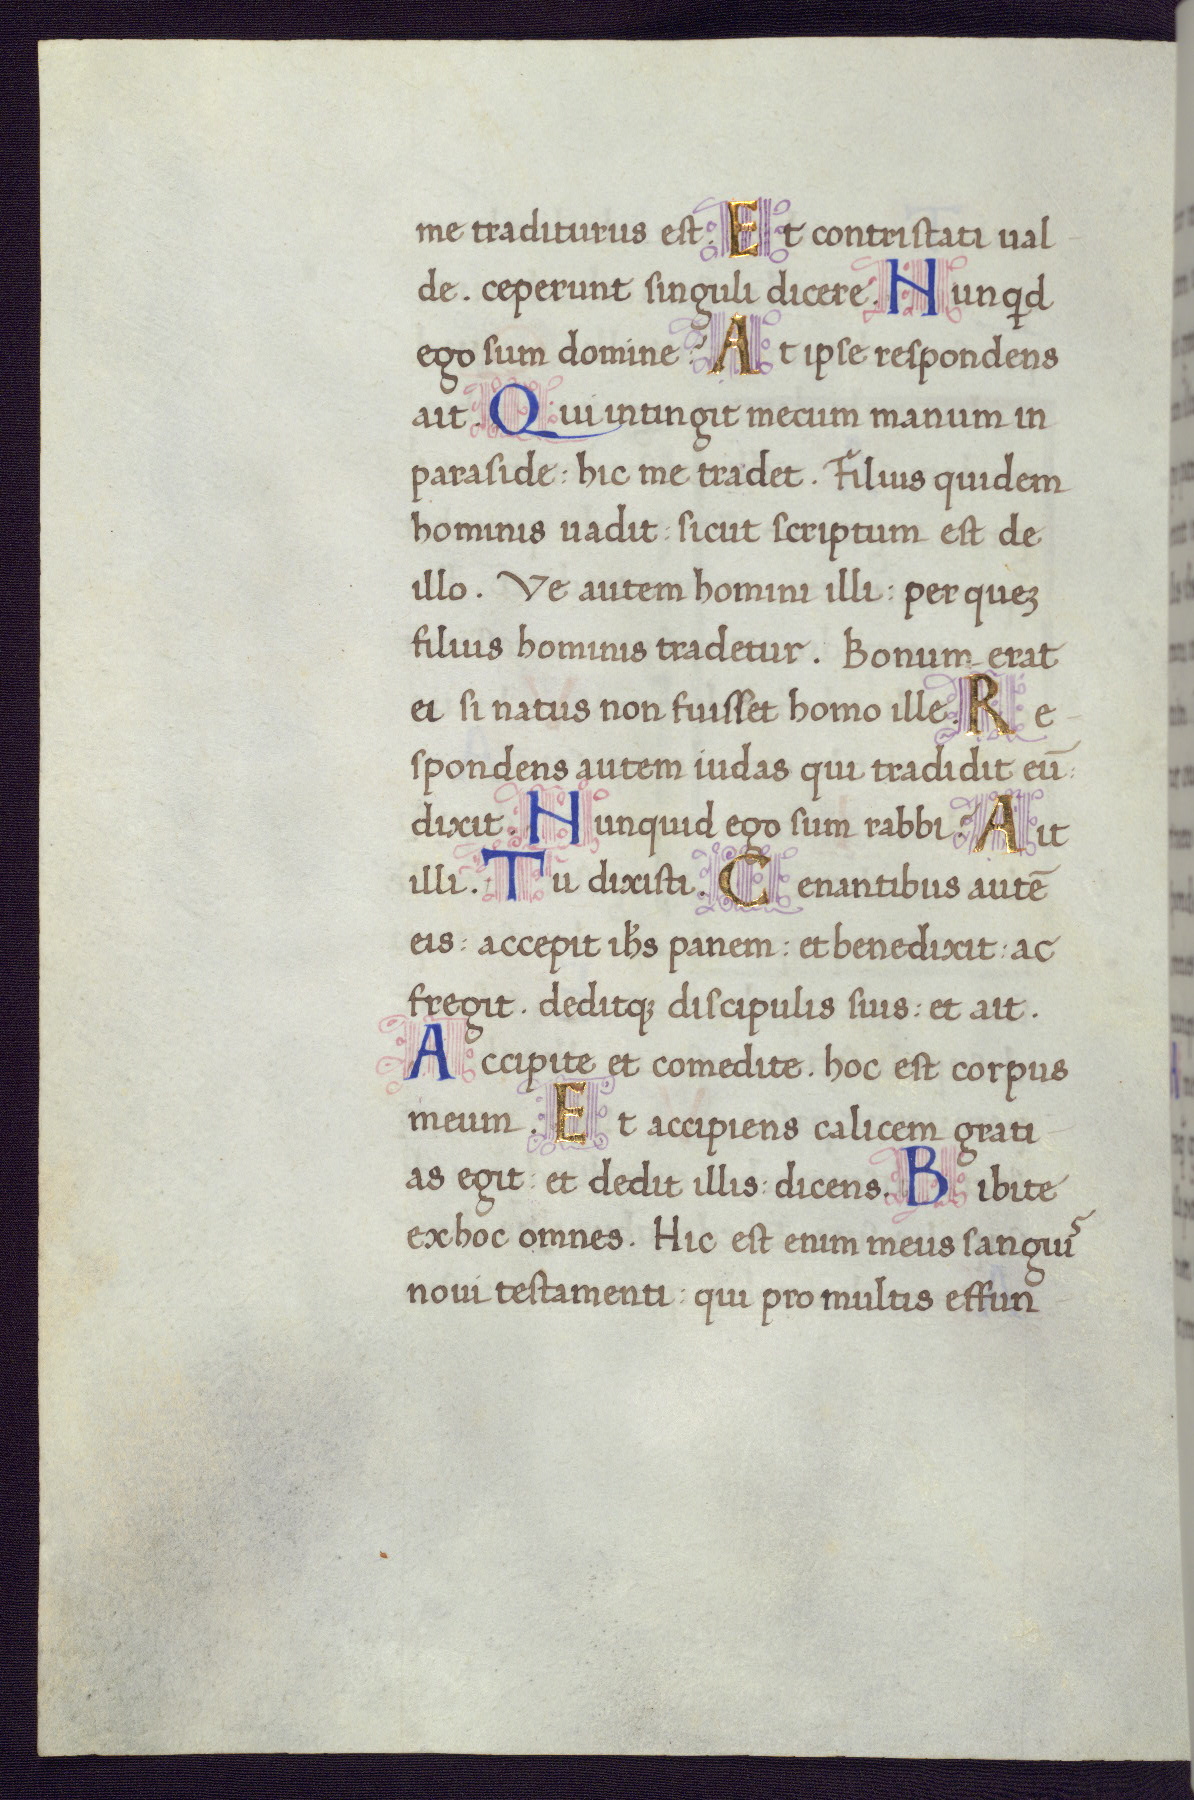 me traditurus est. Et contristati ual-
de. ceperunt singuli dicere. Nunqd
ego sum domine? At ipse respondens
ait. Qui intingit mecum manum in
paraside: hic me tradet. Filius quidem
hominis uadit: sicut scriptum est de
illo. Ve autem homini illi: per queʒ
filius hominis tradetur. Bonum erat
ei si natus non fuisset homo ille. Re-
spondens autem iudas qui tradidit eū:
dixit. Nunquid ego sum rabbi? Ait
illi. Tu dixisti. Cenantibus autē
eis: accepit ihs panem: et benedixit: ac
fregit. deditqʒ discipulis suis: et ait.
Accipite et comedite. hoc est corpus
meum. Et accipiens calicem grati-
as egit: et dedit illis: dicens. Bibite
ex hoc omnes. Hic est enim meus sanguiˢ
noui testamenti: qui pro multis effun-